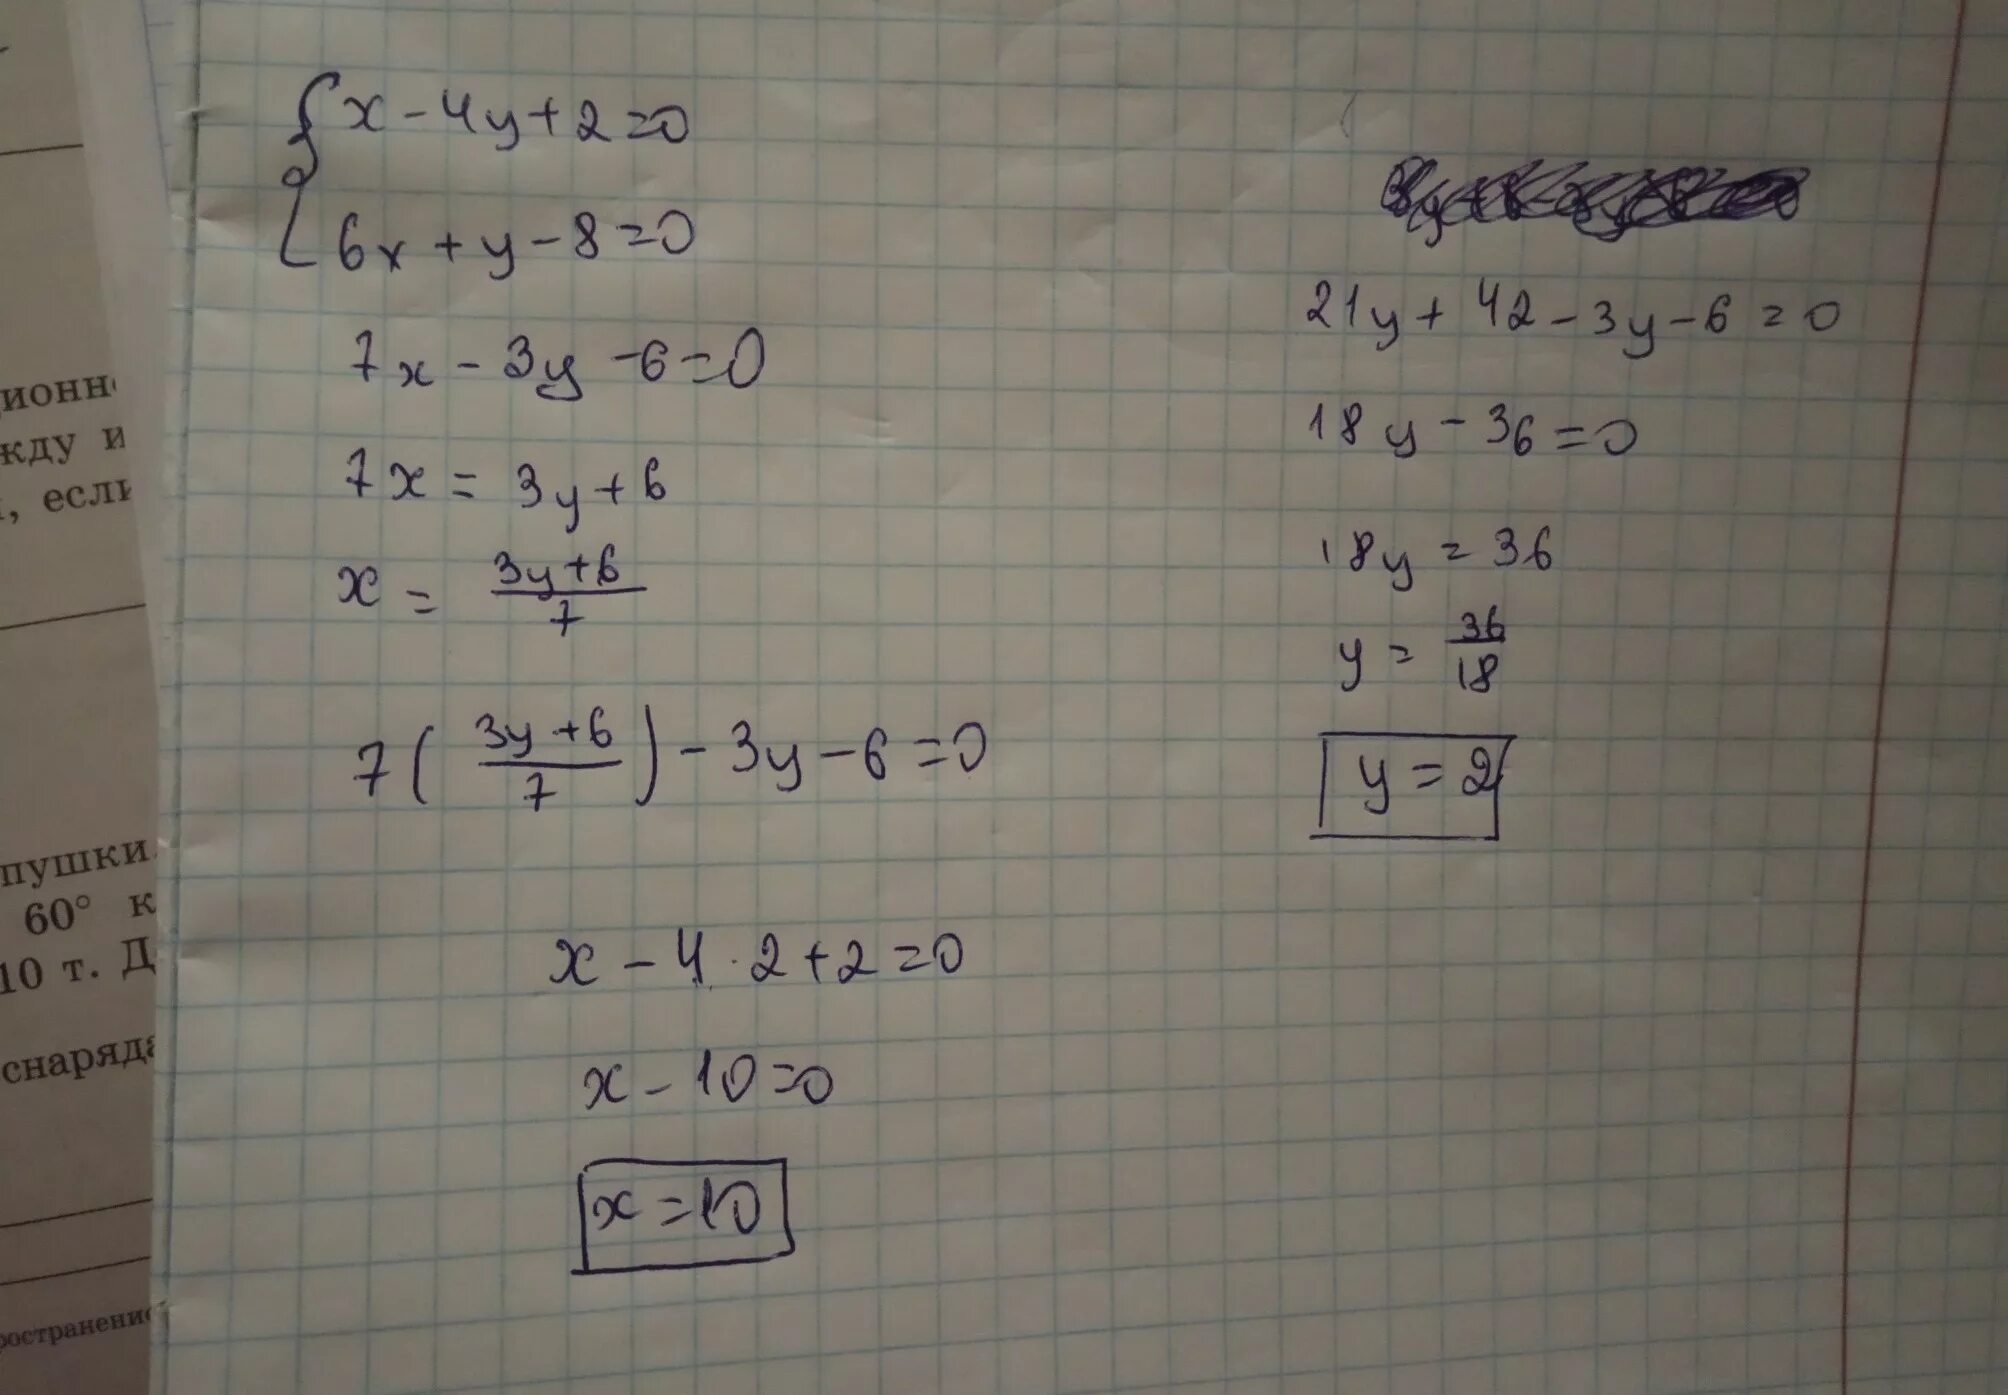 x - 4y + 2 = 0
6x + y - 8 = 0
7x - 3y - 6 = 0
7x = 3y + 6
x = \frac{3y + 6}{7}
7 ( \frac{3y + 6}{7} ) - 3y - 6 = 0
x - 4 · 2 + 2 = 0
x - 10 = 0
x = 10
21y + 42 - 3y - 6 = 0
18y - 36 = 0
18y = 36
y = \frac{36}{18}
y = 2
жду и
пушки
60° к
10 т. Д
снаряда